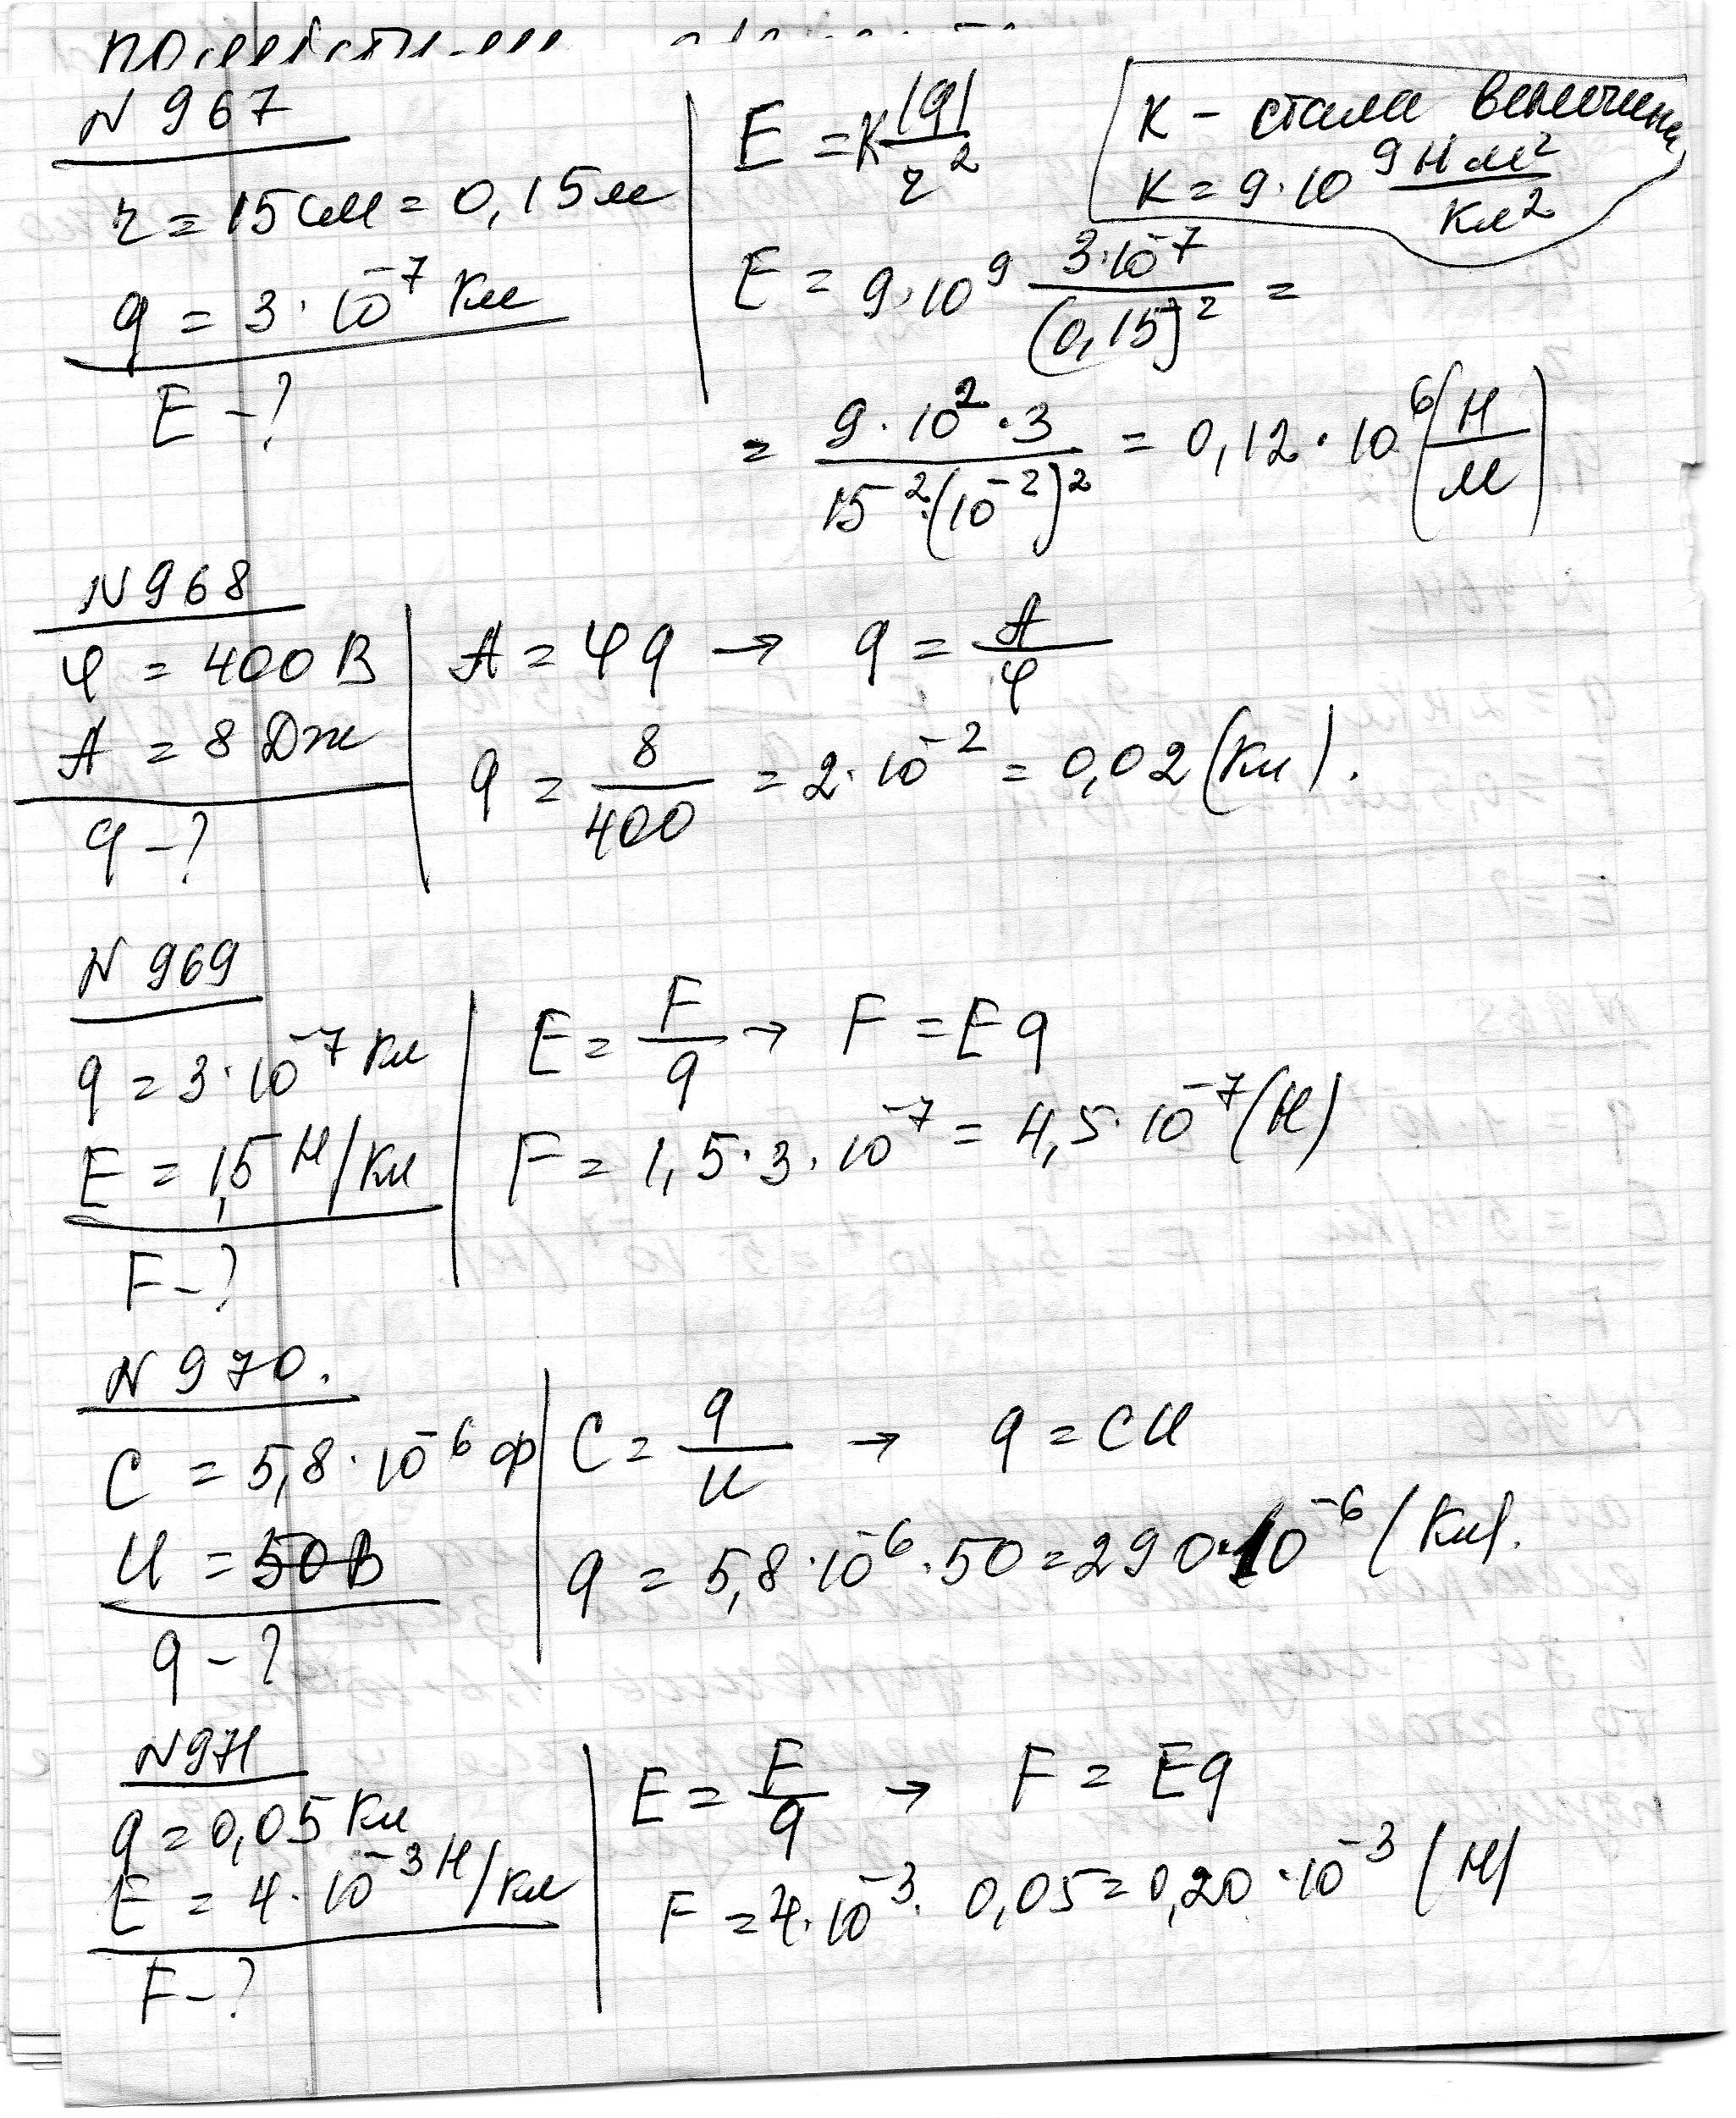 N 967
r = 15 см = 0,15 м
q = 3 · 10⁻⁷ Кл
E - ?
E = K |q| / r²
K - стала величина
K = 9 · 10⁹ Н м² / Кл²
E = 9 · 10⁹ 3·10⁻⁷ / (0,15)² =
= 9 · 10² · 3 / 15² · (10⁻²)² = 0,12 · 10⁶ (Н / м)
N 968
φ = 400 В
A = 8 Дж
q - ?
A = φ q → q = A / φ
q = 8 / 400 = 2 · 10⁻² = 0,02 (Кл).
N 969
q = 3 · 10⁻⁷ Кл
E = 1,5 Н/Кл
F - ?
E = F / q → F = E q
F = 1,5 · 3 · 10⁻⁷ = 4,5 · 10⁻⁷ (Н)
N 970.
C = 5,8 · 10⁻⁶ ф
U = 50 В
q - ?
C = q / U → q = C U
q = 5,8 · 10⁻⁶ · 50 = 290 · 10⁻⁶ (Кл).
N 971
q = 0,05 Кл
E = 4 · 10⁻³ Н/Кл
F - ?
E = F / q → F = E q
F = 4 · 10⁻³ · 0,05 = 0,20 · 10⁻³ (Н)